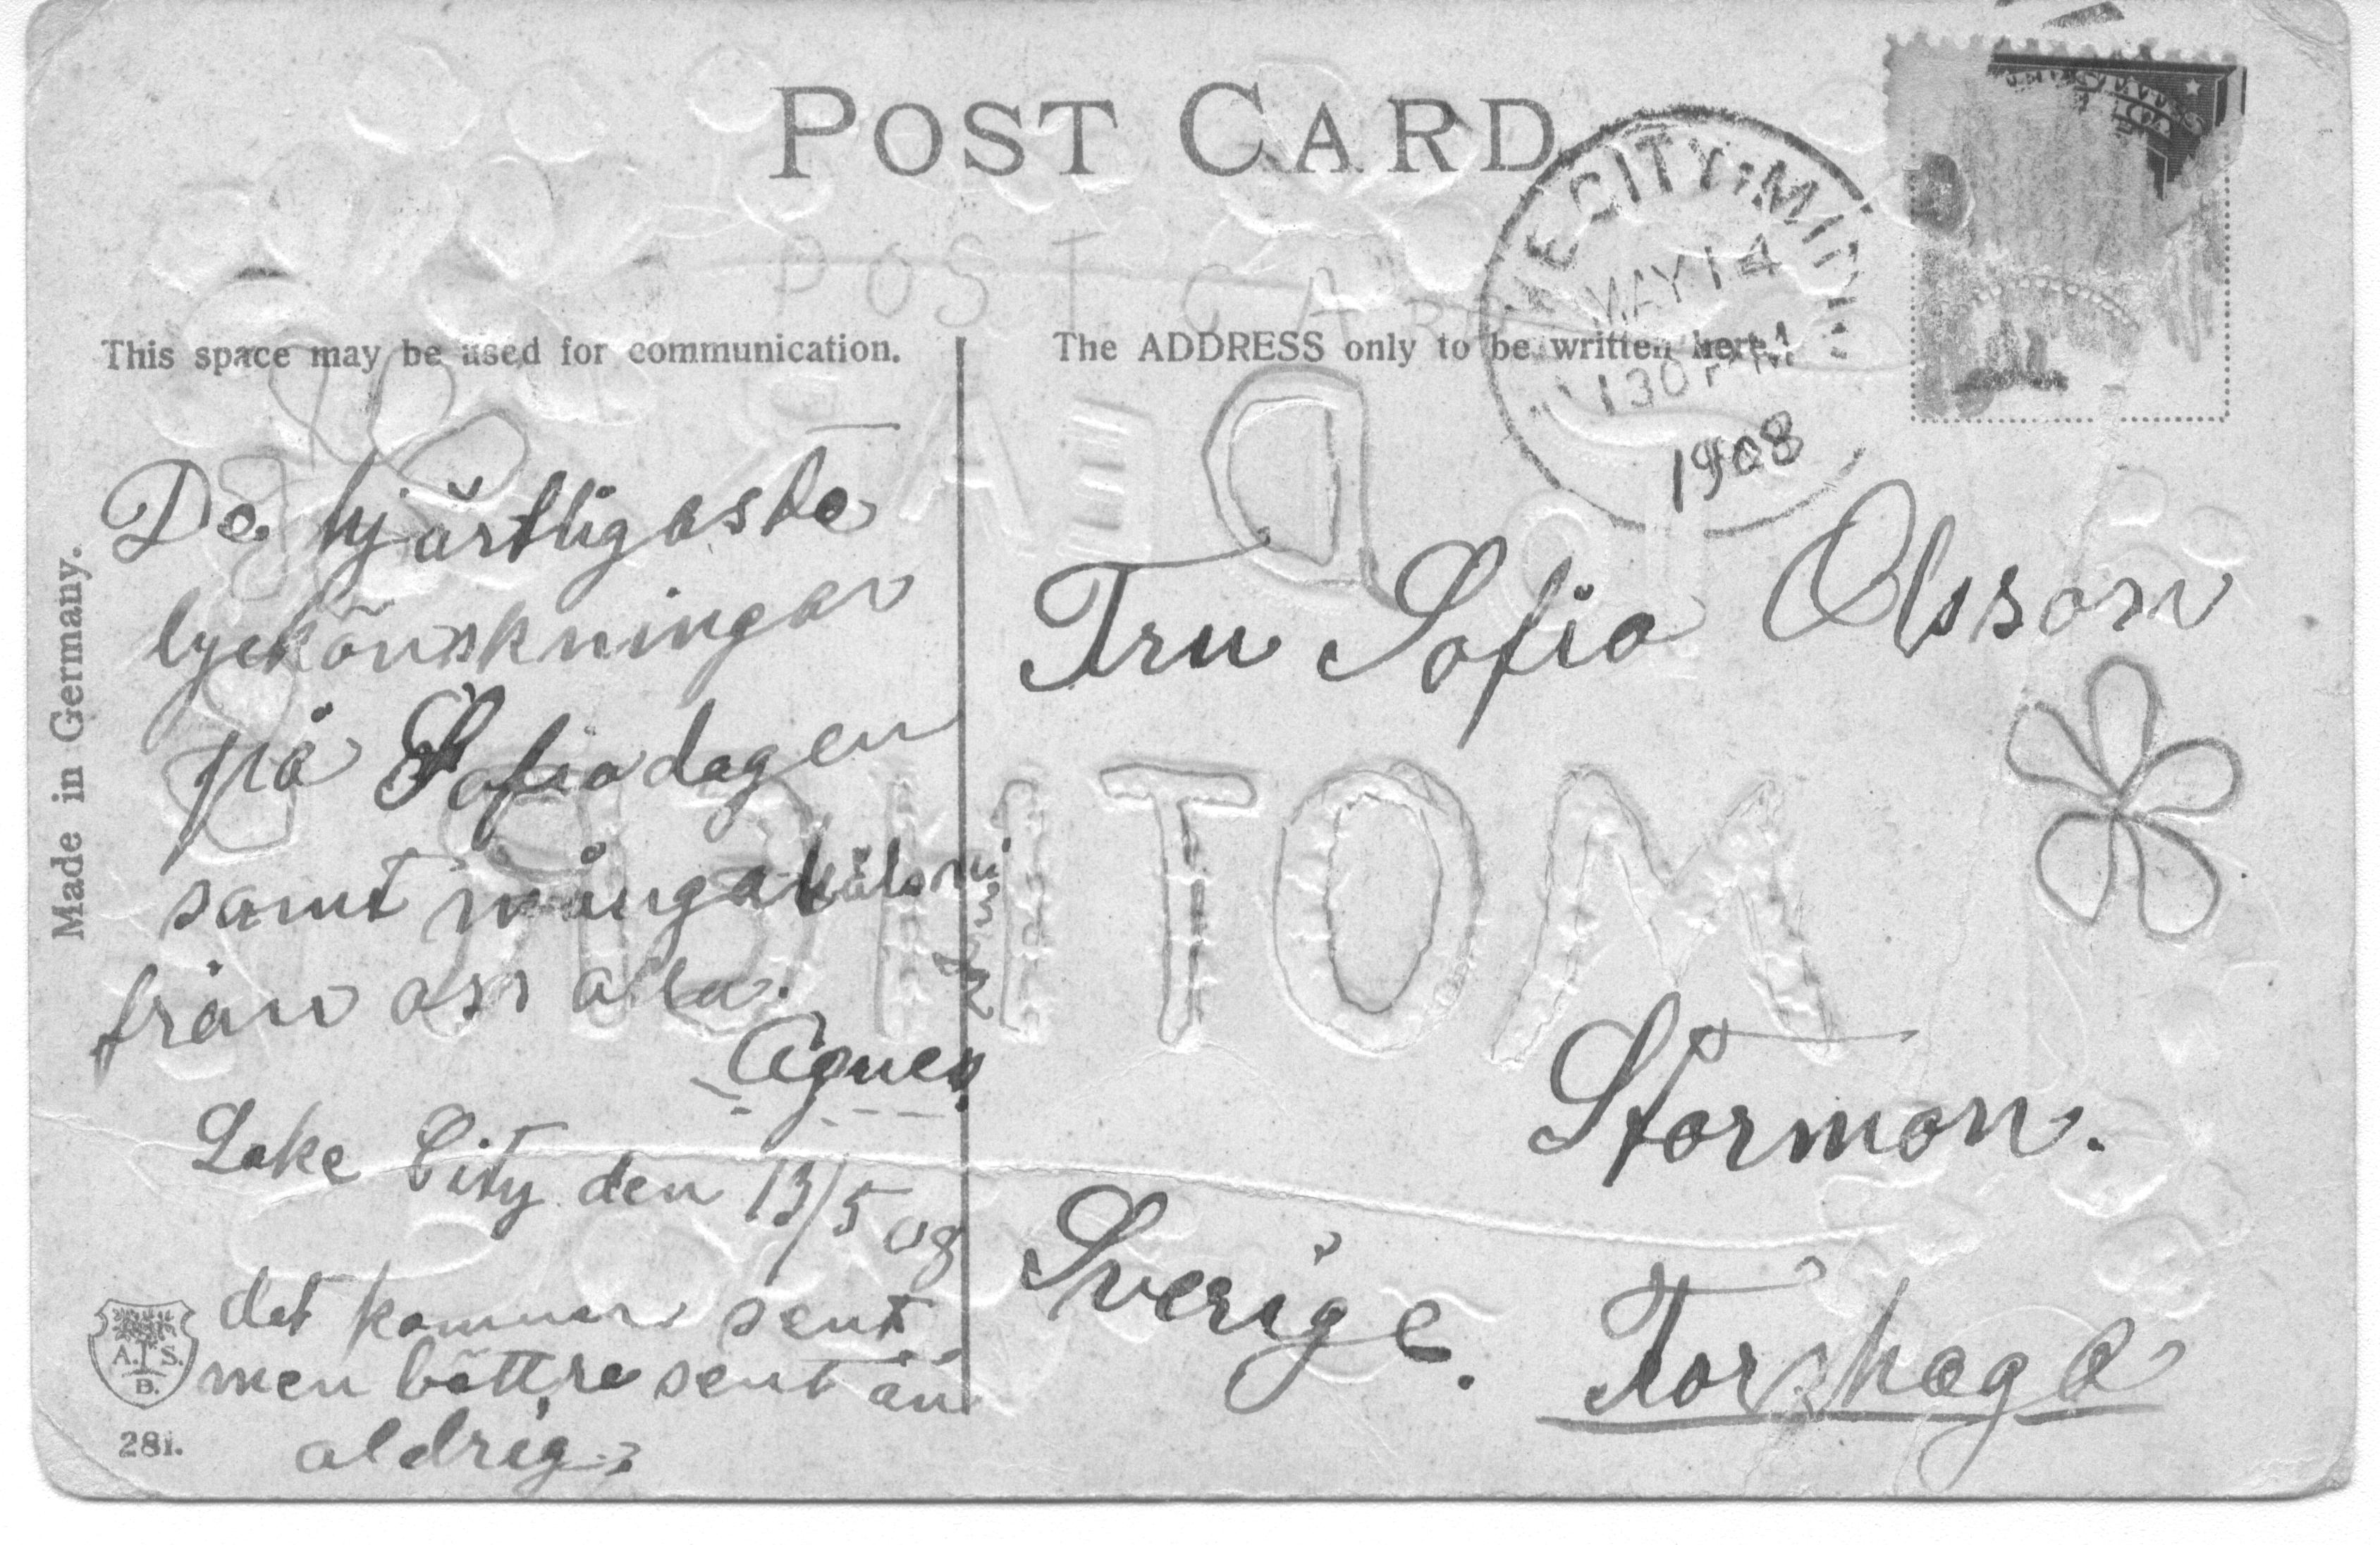 POST CARD
POST CARD
KE CITY, MINN
MAY 14
130 PM
1908
This space may be used for communication.
The ADDRESS only to be written here.
De hjärtligaste
lyckönskningar
på Sofiadagen
samt många hälsningar
från oss alla.
Agnes
Lake City den 13/5 08
det kommer sent
men bättre sent än
aldrig.
Fru Sofia Olsson
Stormon.
Sverige.
Forshaga
Made in Germany.
A. S.
B.
281.